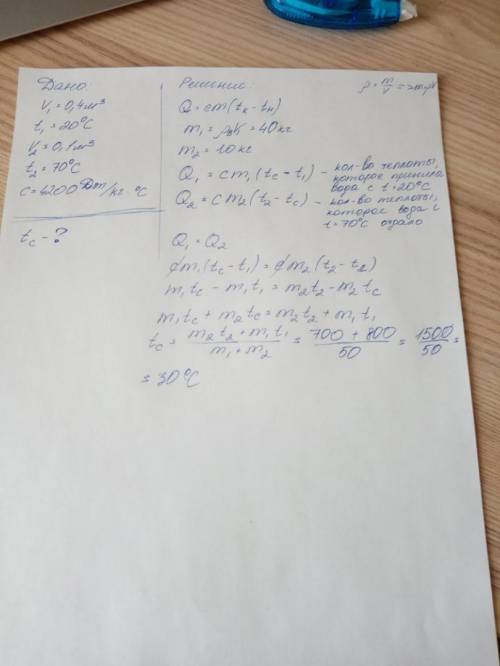 Дано:
V₁ = 0,4 м³
t₁ = 20°C
V₂ = 0,1 м³
t₂ = 70°C
C = 4200 Дж/кг·°C
tc - ?
Решение:
ρ = m/V =>
Q = cm(tк - tн)
m₁ = ρвV = 40 кг
m₂ = 10 кг
Q₁ = cm₁(tc - t₁) - кол-во теплоты, которое приняла вода с t = 20°C
Q₂ = cm₂(t₂ - tc) - кол-во теплоты, которое вода с t = 70°C отдала
Q₁ = Q₂
cm₁(tc - t₁) = cm₂(t₂ - t₂)
m₁tc - m₁t₁ = m₂t₂ - m₂tc
m₁tc + m₂tc = m₂t₂ + m₁t₁
tc = (m₂t₂ + m₁t₁)/(m₁ + m₂) = (700 + 800)/50 = 1500/50 =
= 30°C